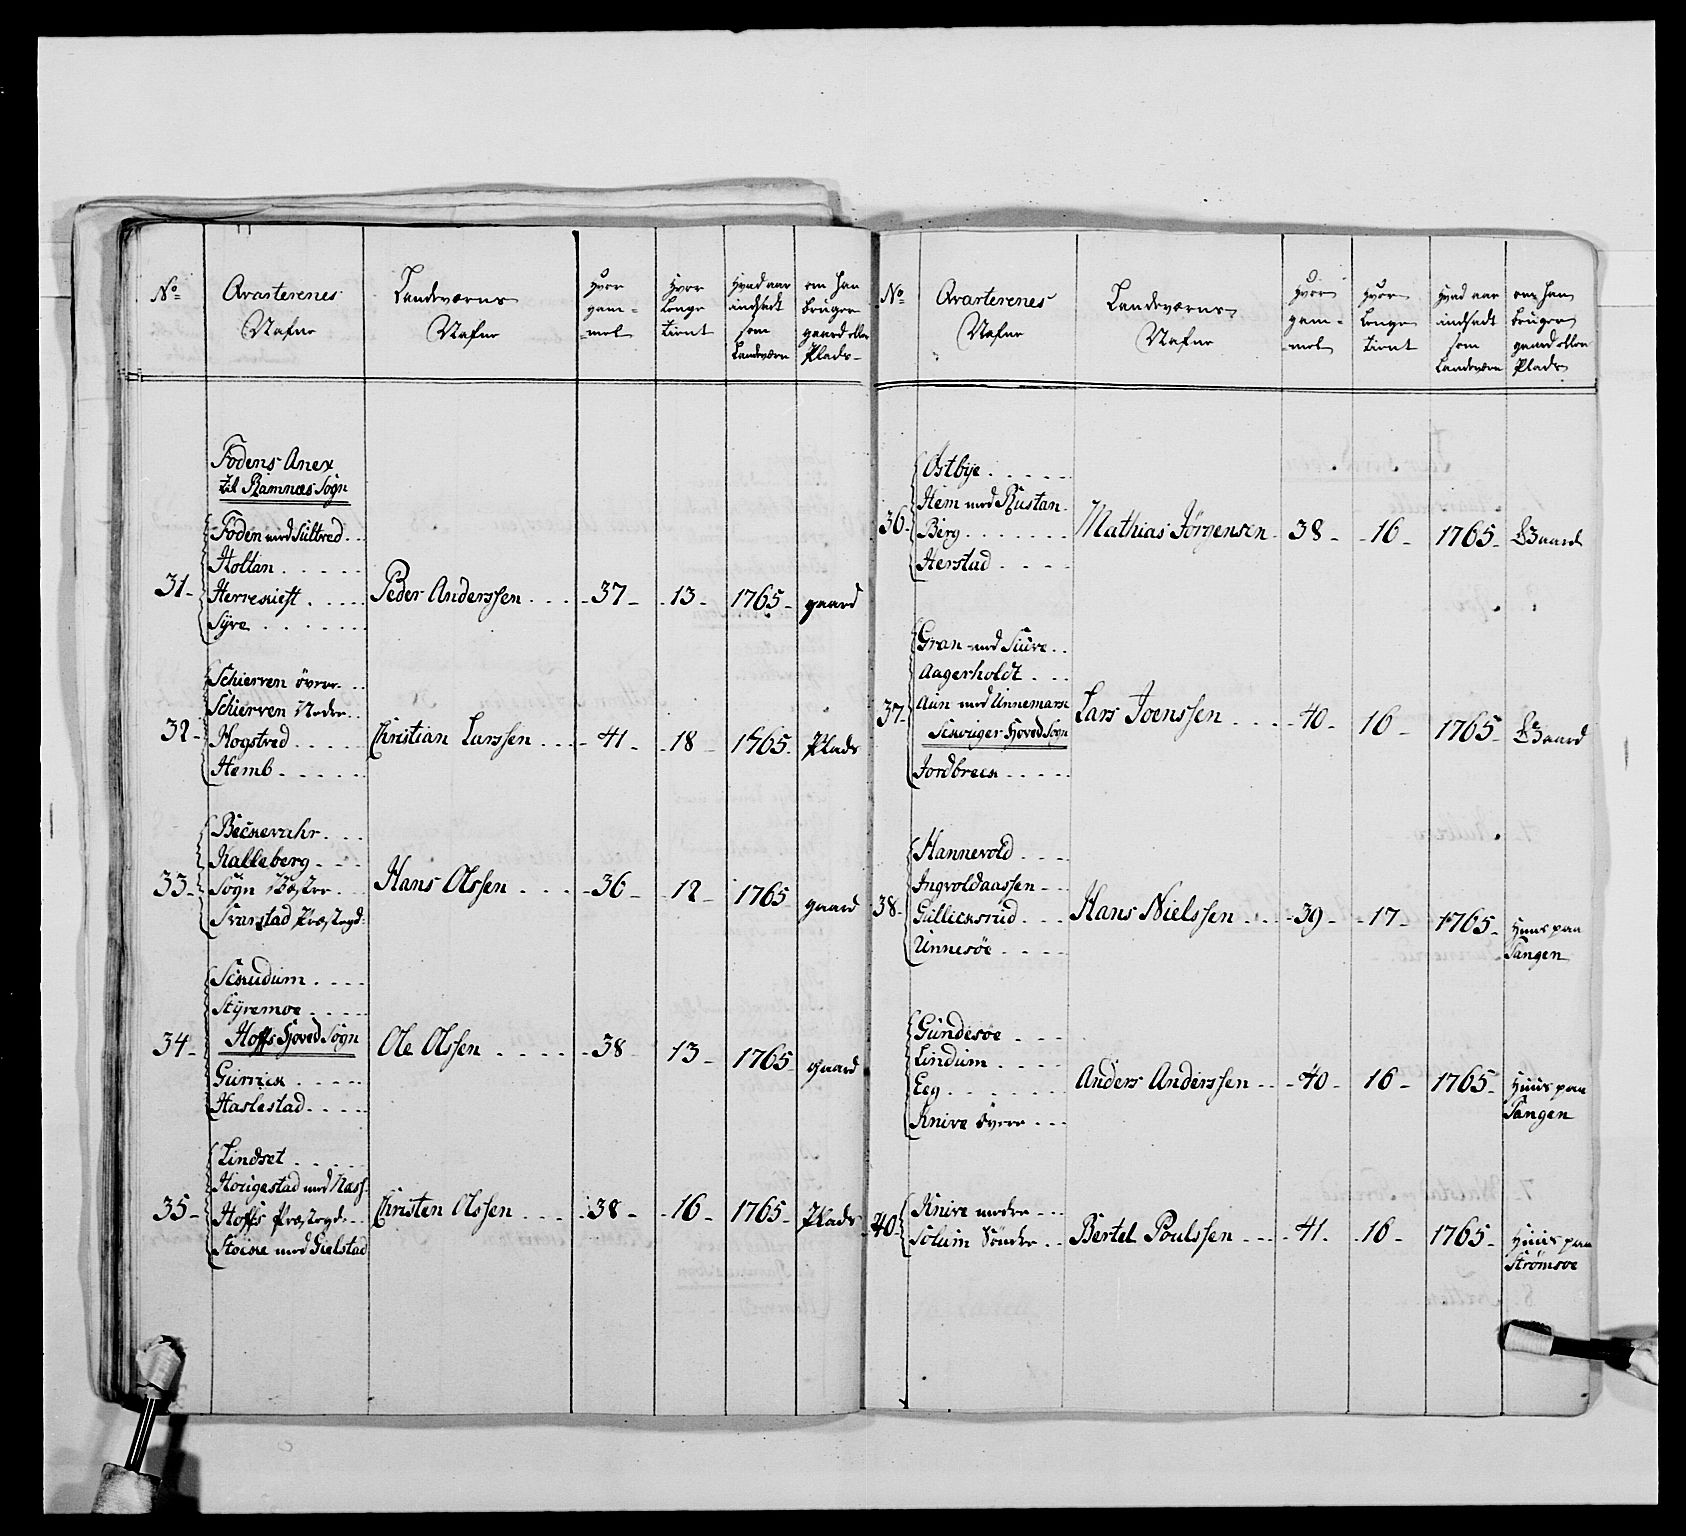 No
Qvarterenes
Nafne
Landeværns
Nafne
Hvor
gam=
mel
Hvor
Lenge
tient
Hvad aar
indsadt
som
Landeværn
om han
bruger
gaard eller
Plads
Fodens Anex
til Ramnæs Sogn
31
Foden med Sultved
Holtan
Herreskieft
Syre
Peder Anderssen 37 13 1765 gaard
32
Schierven övere
Schierven Nedre
Rogstved
Hemb
Christian Larssen 41 18 1765 Plads
33
Beckevahr
Kalleberg
Sogn Westre
Svarstad Præstegd:
Hans Olssen 36 12 1765 gaard
34
Sckudum
Styremoe
Hoffs Hoved Sogn
Gurrick
Haslestad
Ole Olssen 38 13 1765 gaard
35
Lindset
Hougestad med Næss
Hoffs Præstegd
Skiske med Gielstad
Christen Olssen 38 16 1765 Plads
No
Qvarterenes
Nafne
Landeværns
Nafne
Hvor
gam=
mel
Hvor
Lenge
tient
Hvad aar
indsadt
som
Landeværn
om han
bruger
gaard eller
Plads
36
Østbye
Hem med Rustan
Berg
Herstad
Mathias Jörgensen 38 16 1765 Gaard
37
Gran med Siure
Aagerholdt
Aun med Unnemarsk
Sckouger Hoved Sogn
Jordbreck
Lars Joenssen 40 16 1765 Gaard
38
Hannevold
Ingvoldaassen
Gullicksrud
Unnesöe
Hans Nielssen 39 17 1765 Huus paa
Tangen
Gundesöe
Lindum
Eeg
Knive övere
Anders Anderssen 40 16 1765 Huus paa
Tangen
40
Knive nedre
Solum Söndre
Bertel Poulssen 41 16 1765 Huus paa
Strömsoe